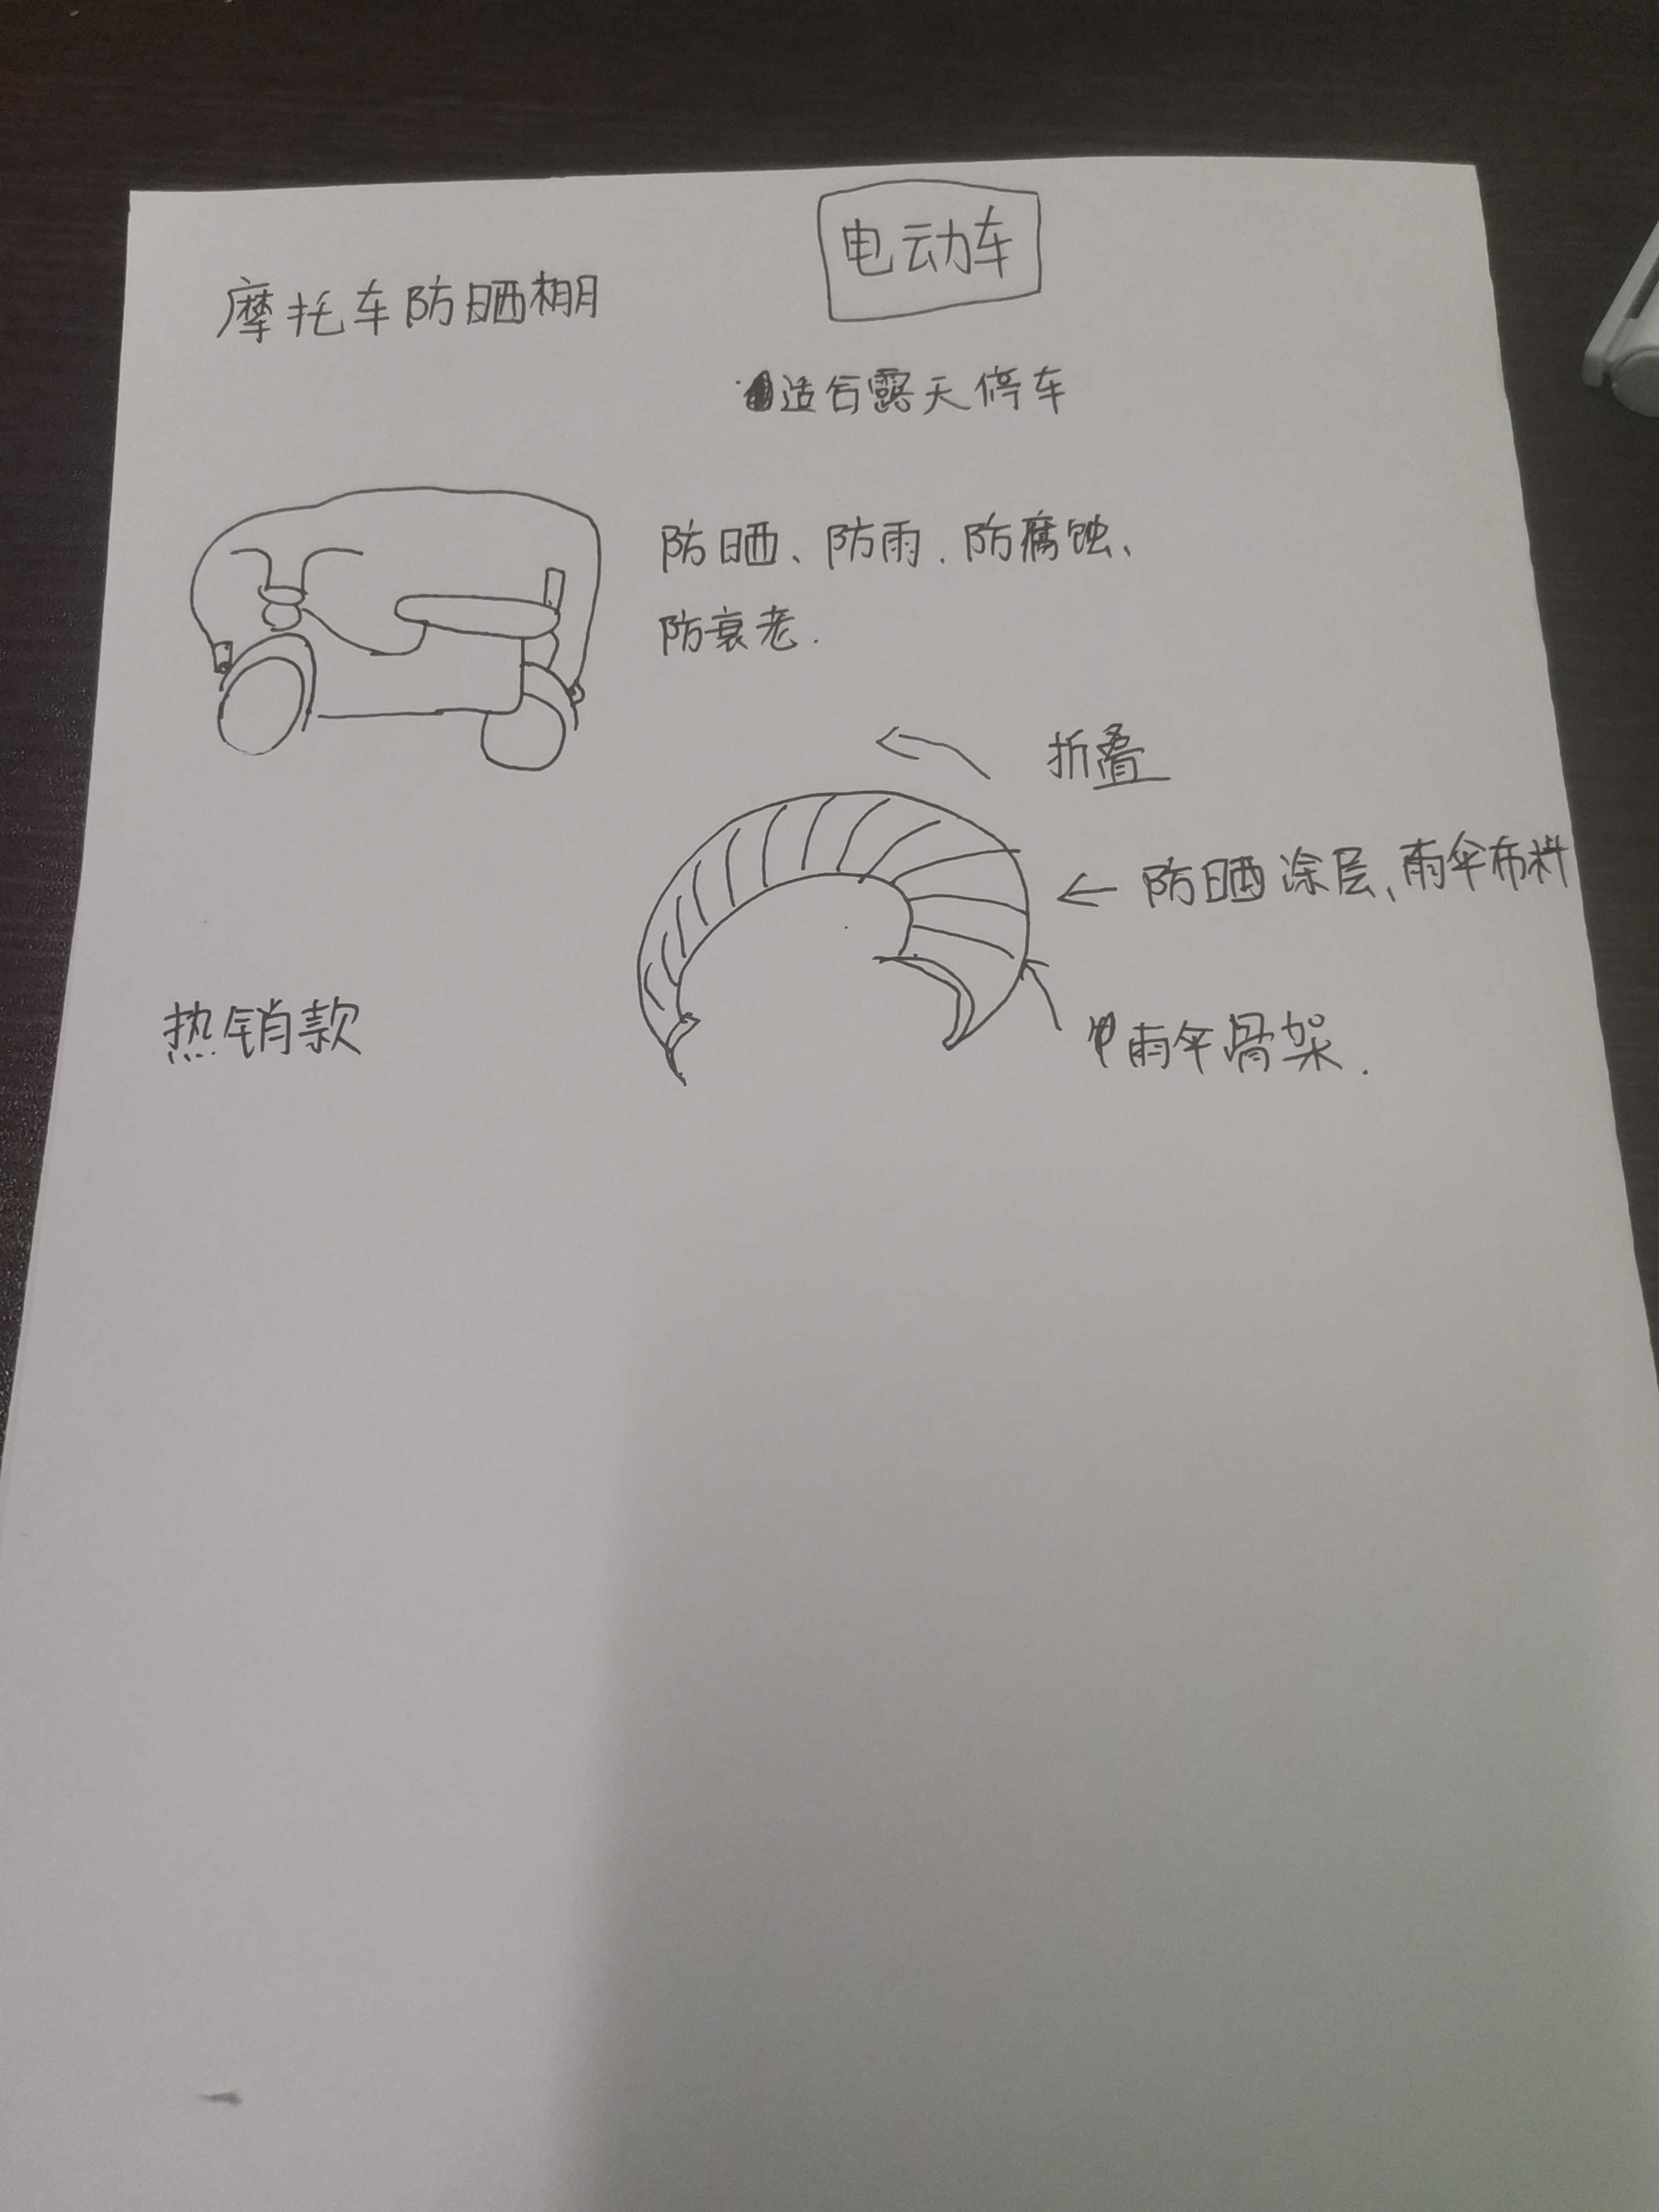 电动车
摩托车防晒棚
适合露天停车
防晒、防雨、防腐蚀、
防衰老.
折叠
防晒涂层、雨伞布料
热销款
雨伞骨架.